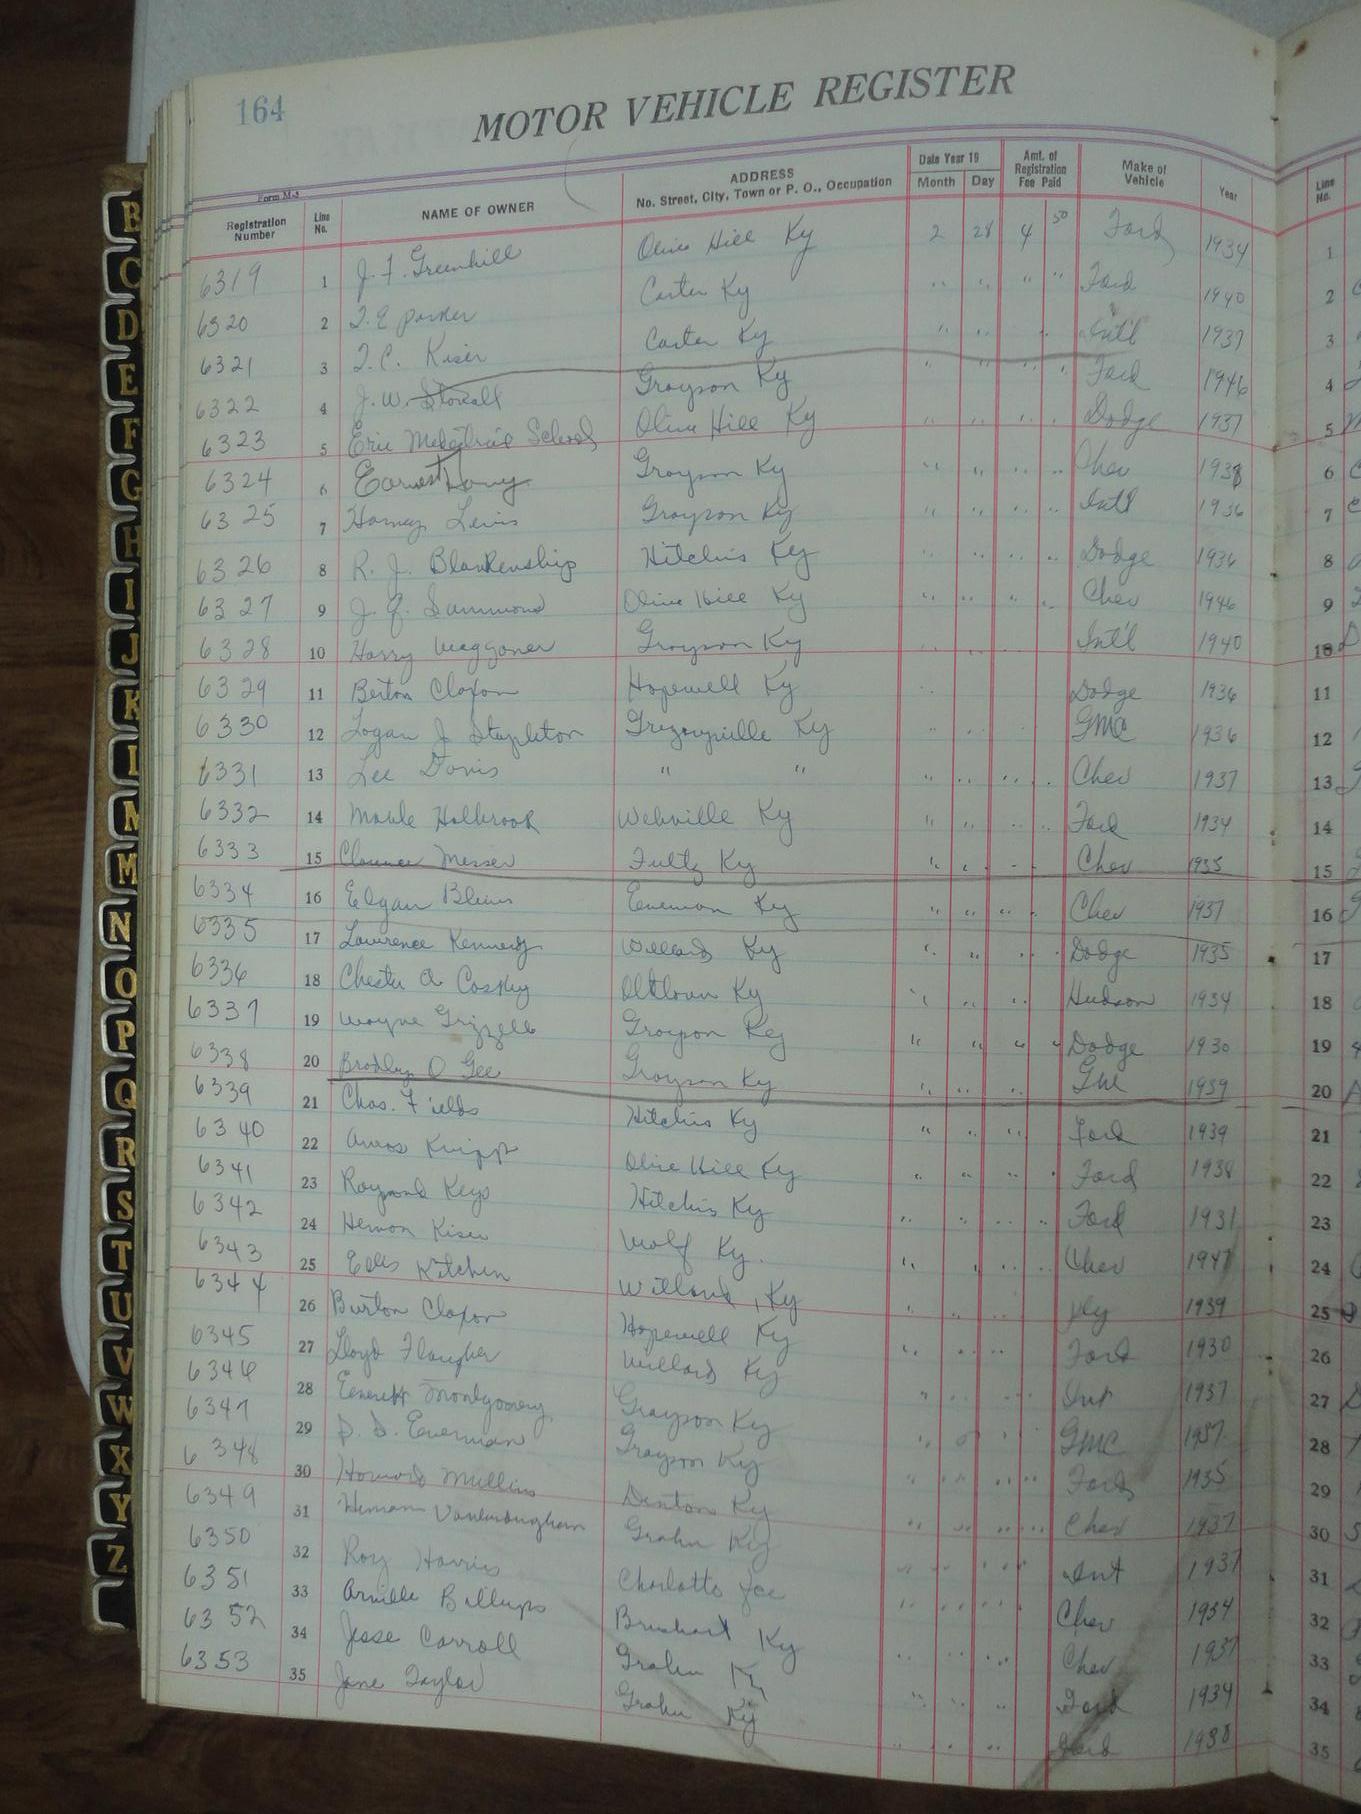 164
MOTOR VEHICLE REGISTER
Form M-3
Registration Number Line No. NAME OF OWNER ADDRESS No. Street, City, Town or P. O., Occupation Date Year 19 Month Day Amt. of Registration Fee Paid Make of Vehicle Year Line No.
6319 1 J. F. Greenhill Olive Hill Ky 2 28 4 50 Ford 1934 1
6320 2 T. E. Parker Carter Ky " " " " Ford 1940 2
6321 3 T. C. Kiser Carter Ky " " " Int'l 1937 3
6322 4 J. W. Stovall Grayson Ky " " " " Ford 1946 4
6323 5 School Olive Hill Ky " " " " Dodge 1937 5
6324 6 Earnest Grayson Ky " " " " Chev 1938 6
6325 7 Harvey Lewis Grayson Ky " " " " Intl 1936 7
6326 8 R. J. Blankenship Hitchins Ky " " " " Dodge 1936 8
6327 9 J. Sammond Olive Hill Ky " " " " Chev 1946 9
6328 10 Harry Waggoner Grayson Ky " " " " Int'l 1940 10
6329 11 Berton Claxon Hopewell Ky " Dodge 1936 11
6330 12 Logan J Stapleton Ky " " " GMC 1936 12
6331 13 Lee Davis " " " " " " Chev 1937 13
6332 14 Holbrook Webville Ky " " " " Ford 1934 14
6333 15 Clarence Messer Fultz Ky " " " " Chev 1935 15
6334 16 Elgan Blevins Ky " " " " Chev 1937 16
6335 17 Lawrence Kennedy Willard Ky " " " " Dodge 1935 17
6336 18 Chester A Coskey Oldtown Ky " " " Hudson 1934 18
6337 19 Wayne Grizzell Grayson Ky " " " " Dodge 1930 19
6338 20 Bradley O Gee Grayson Ky " " " GMC 1939 20
6339 21 Chas. Fields Hitchins Ky " " " Ford 1939 21
6340 22 Amos Knipp Olive Hill Ky " " " " Ford 1938 22
6341 23 Raymond Keys Hitchins Ky " " " " Ford 1931 23
6342 24 Hernon Kiser Wolf Ky. " " " " Chev 1947 24
6343 25 Kitchen Willard, Ky " " " Ply 1939 25
6344 26 Burton Claxon Hopewell Ky " " " Ford 1930 26
6345 27 Lloyd Flaugher Willard Ky " " " Int 1937 27
6346 28 Everett Montgomery Grayson Ky " " " GMC 1937 28
6347 29 D. D. Everman Grayson Ky " " " " Ford 1935 29
6348 30 Howard Mullins Denton Ky " " " " Chev 1937 30
6349 31 Grahn Ky " " " " Int 1937 31
6350 32 Roy Harris Charlotte " " " " Chev 1934 32
6351 33 Arville Billups Ky " " " Chev 1937 33
6352 34 Jesse Carroll Grahn Ky " " " Ford 1934 34
6353 35 Jane Taylor Grahn Ky " " " Ford 1938 35
B
C
D
E
F
G
H
I
J
K
L
M
M
N
O
P
Q
R
S
T
U
V
W
X
Y
Z